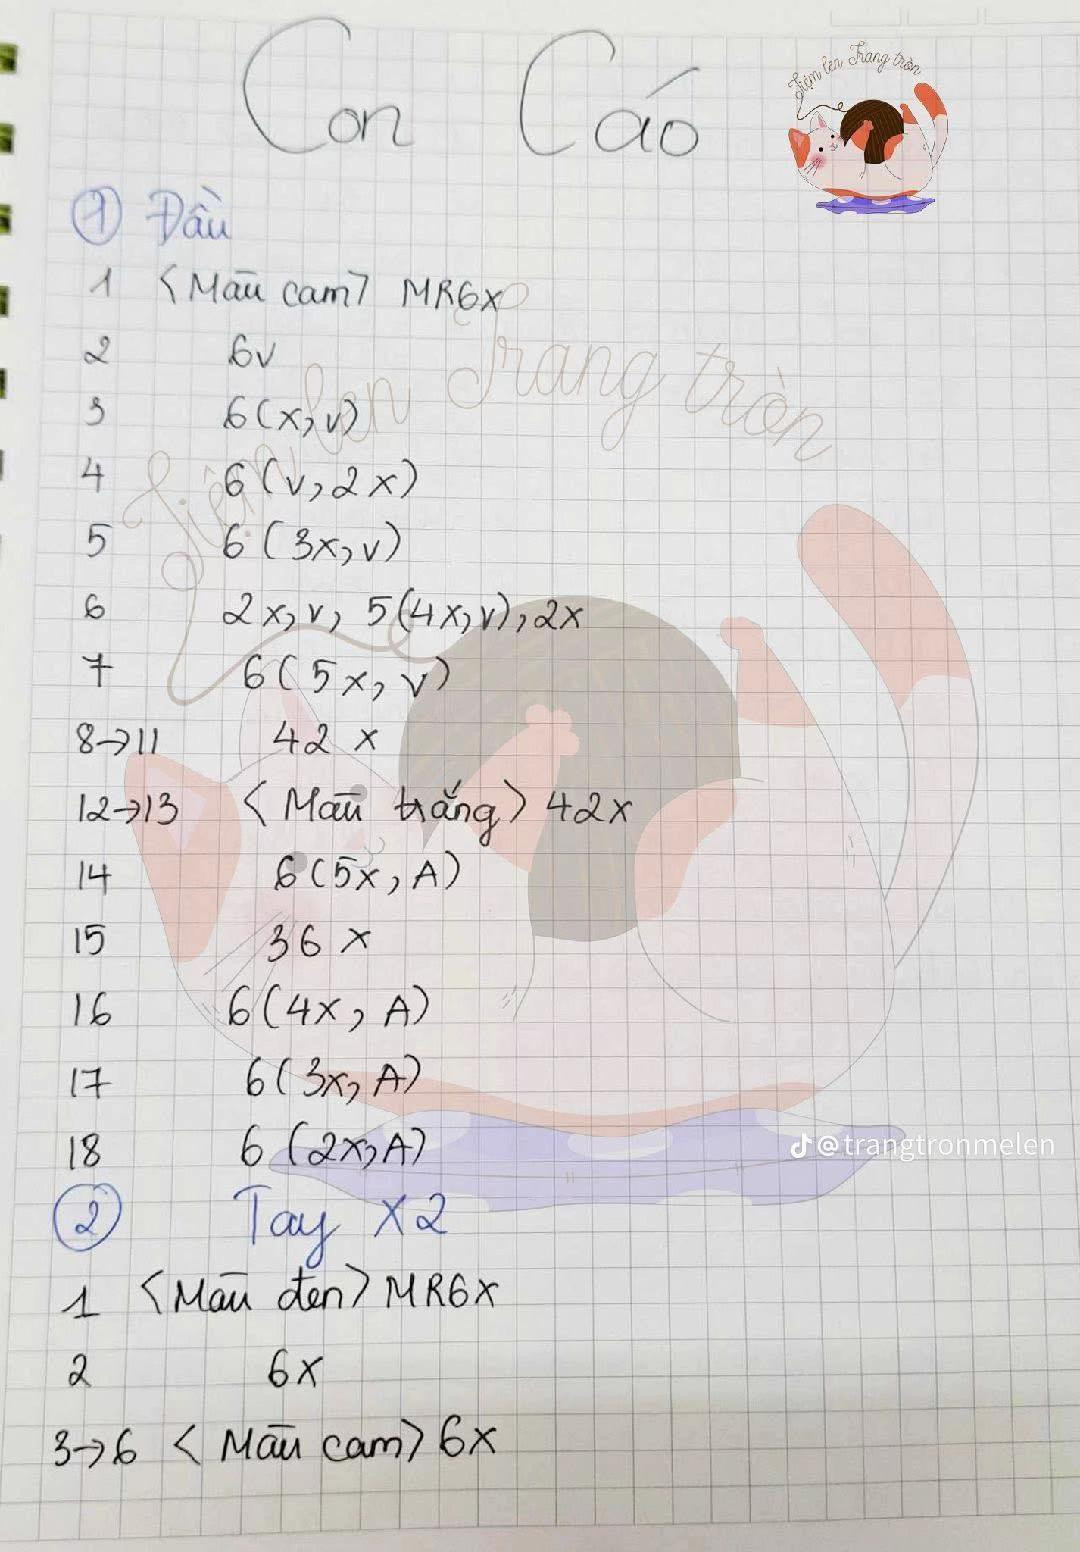 Con Cáo
Tiệm len Trang tròn
① Đầu
1 <Màu cam> MR6x
2 6v
3 6(x, v)
4 6(v, 2x)
5 6(3x, v)
6 2x, v, 5(4x, v), 2x
7 6(5x, v)
8→11 42x
12→13 <Màu trắng> 42x
14 6(5x, A)
15 36x
16 6(4x, A)
17 6(3x, A)
18 6(2x, A)
@trangtronmelen
② Tay x2
1 <Màu đen> MR6x
2 6x
3→6 <Màu cam> 6x
Tiệm len Trang tròn